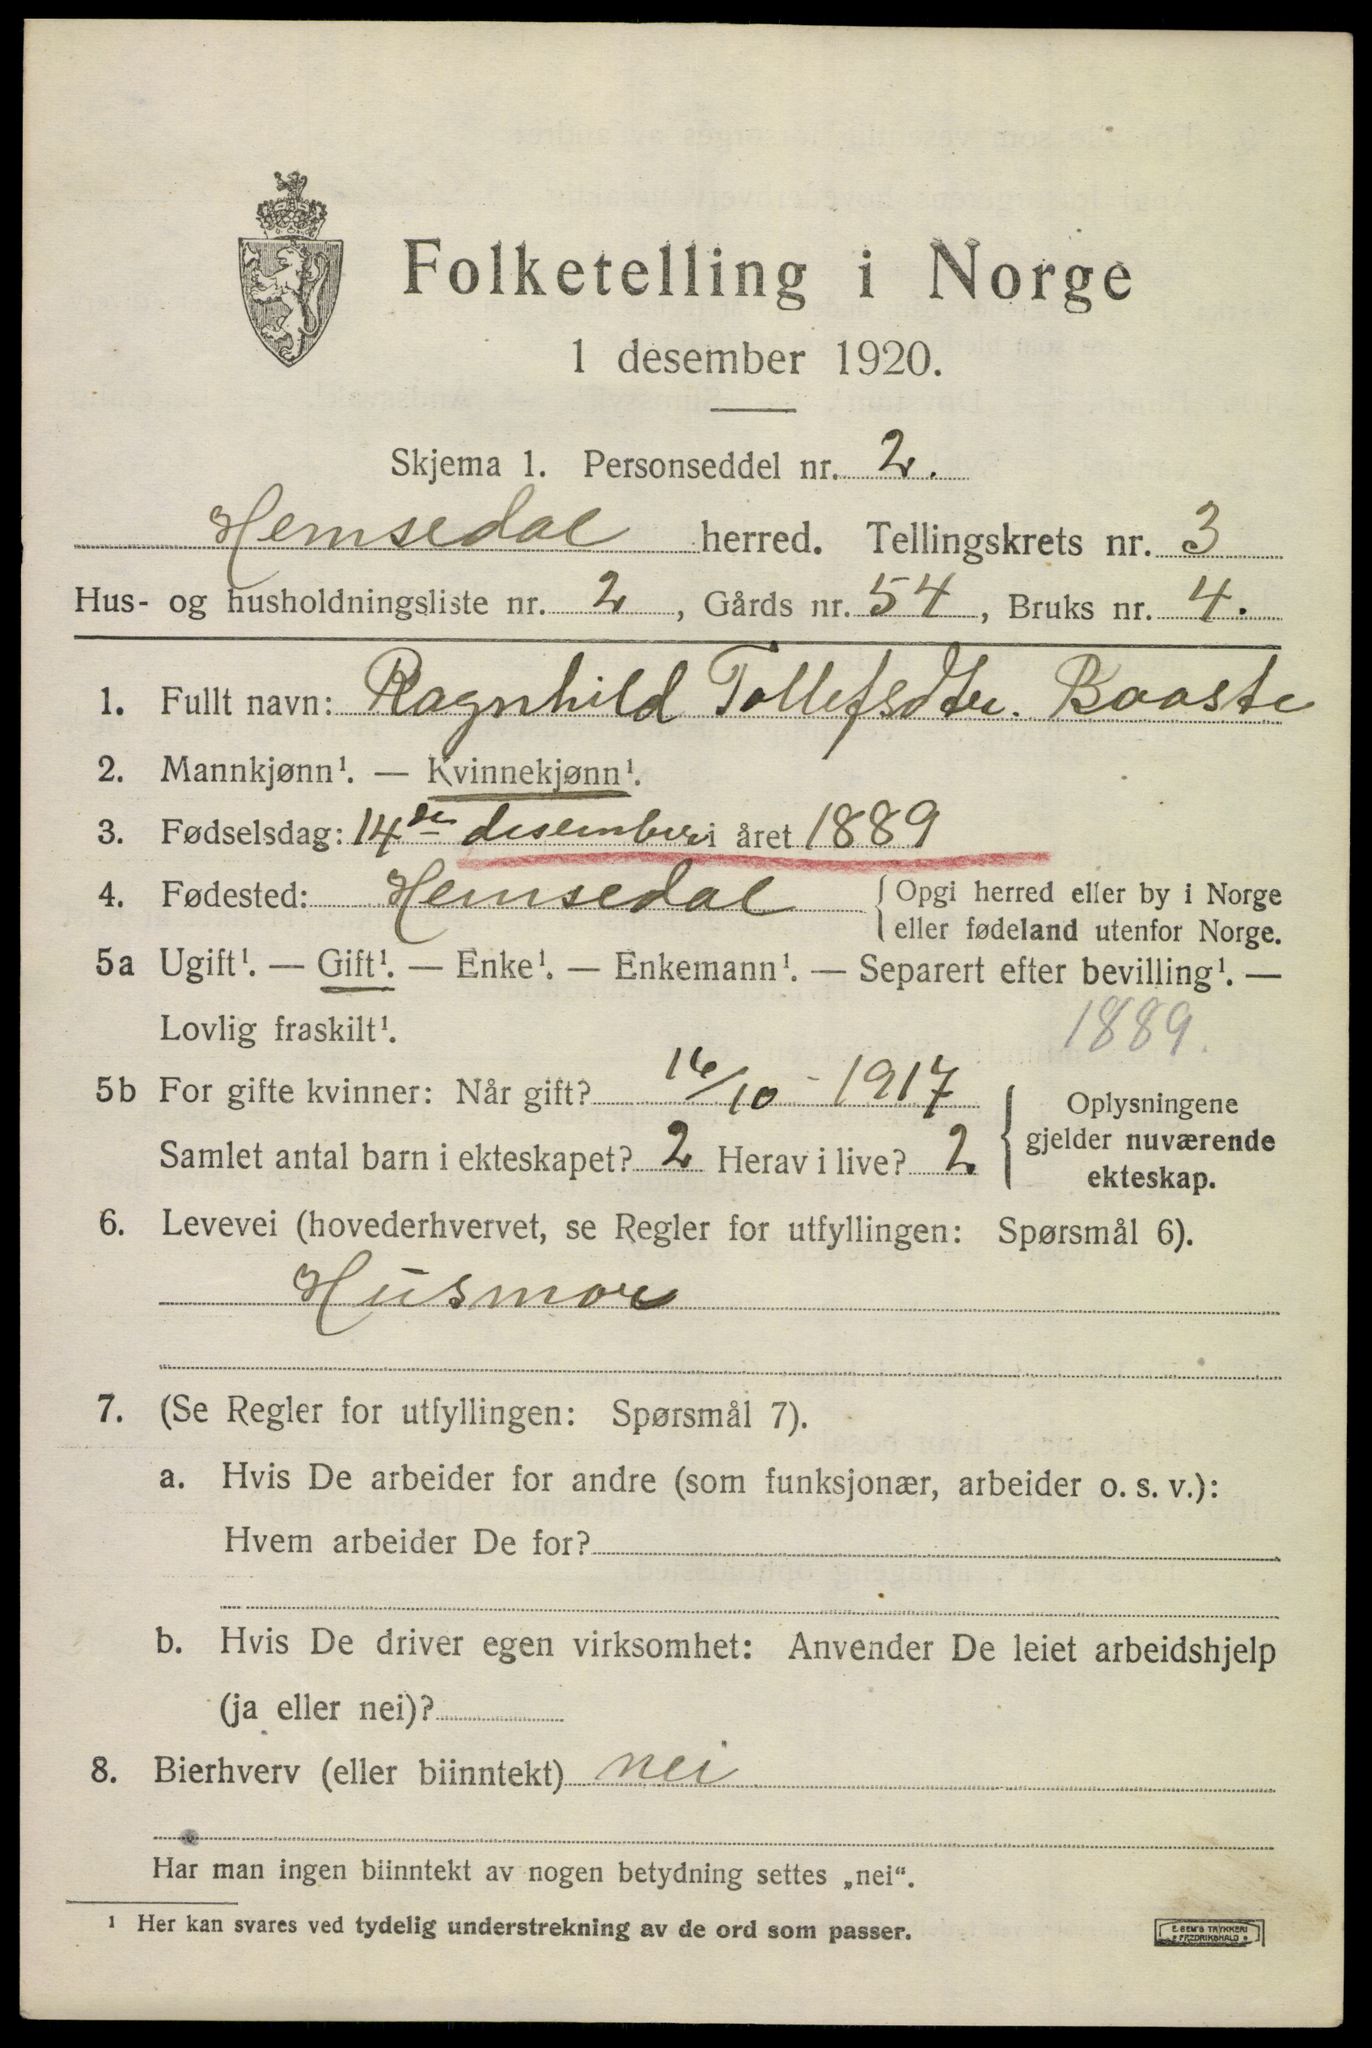 Folketelling i Norge
1 desember 1920.
Skjema 1. Personseddel nr. 2.
Hemsedal herred. Tellingskrets nr. 3
Hus- og husholdningsliste nr. 2, Gårds nr. 54, Bruks nr. 4.
1. Fullt navn: Ragnhild Tollefsdtr. Baaste
2. Mannkjønn¹. — Kvinnekjønn¹.
3. Fødselsdag: 14de desember i året 1889
4. Fødested: Hemsedal { Opgi herred eller by i Norge
eller fødeland utenfor Norge.
5a Ugift¹. — Gift¹. — Enke¹. — Enkemann¹. — Separert efter bevilling¹. —
Lovlig fraskilt¹. 1889.
5b For gifte kvinner: Når gift? 16/10 - 1917
Samlet antal barn i ekteskapet? 2 Herav i live? 2
{ Oplysningene
gjelder nuværende
ekteskap.
6. Levevei (hovederhvervet, se Regler for utfyllingen: Spørsmål 6).
Husmor
7. (Se Regler for utfyllingen: Spørsmål 7).
a. Hvis De arbeider for andre (som funksjonær, arbeider o. s. v.):
Hvem arbeider De for?
b. Hvis De driver egen virksomhet: Anvender De leiet arbeidshjelp
(ja eller nei)?
8. Bierhverv (eller biinntekt) nei
Har man ingen biinntekt av nogen betydning settes „nei“.
¹ Her kan svares ved tydelig understrekning av de ord som passer.
E. SEM'S TRYKKERI
FREDRIKSHALD